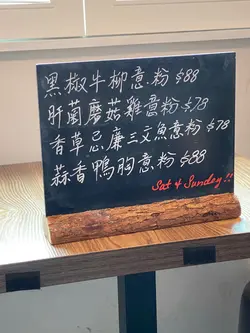 黑椒牛柳意.粉 $88
肝菌蘑菇雞意粉.$78
香草忌.廉三文魚意粉 $78
蒜香鴨胸意粉 $88
Sat & Sunday!!